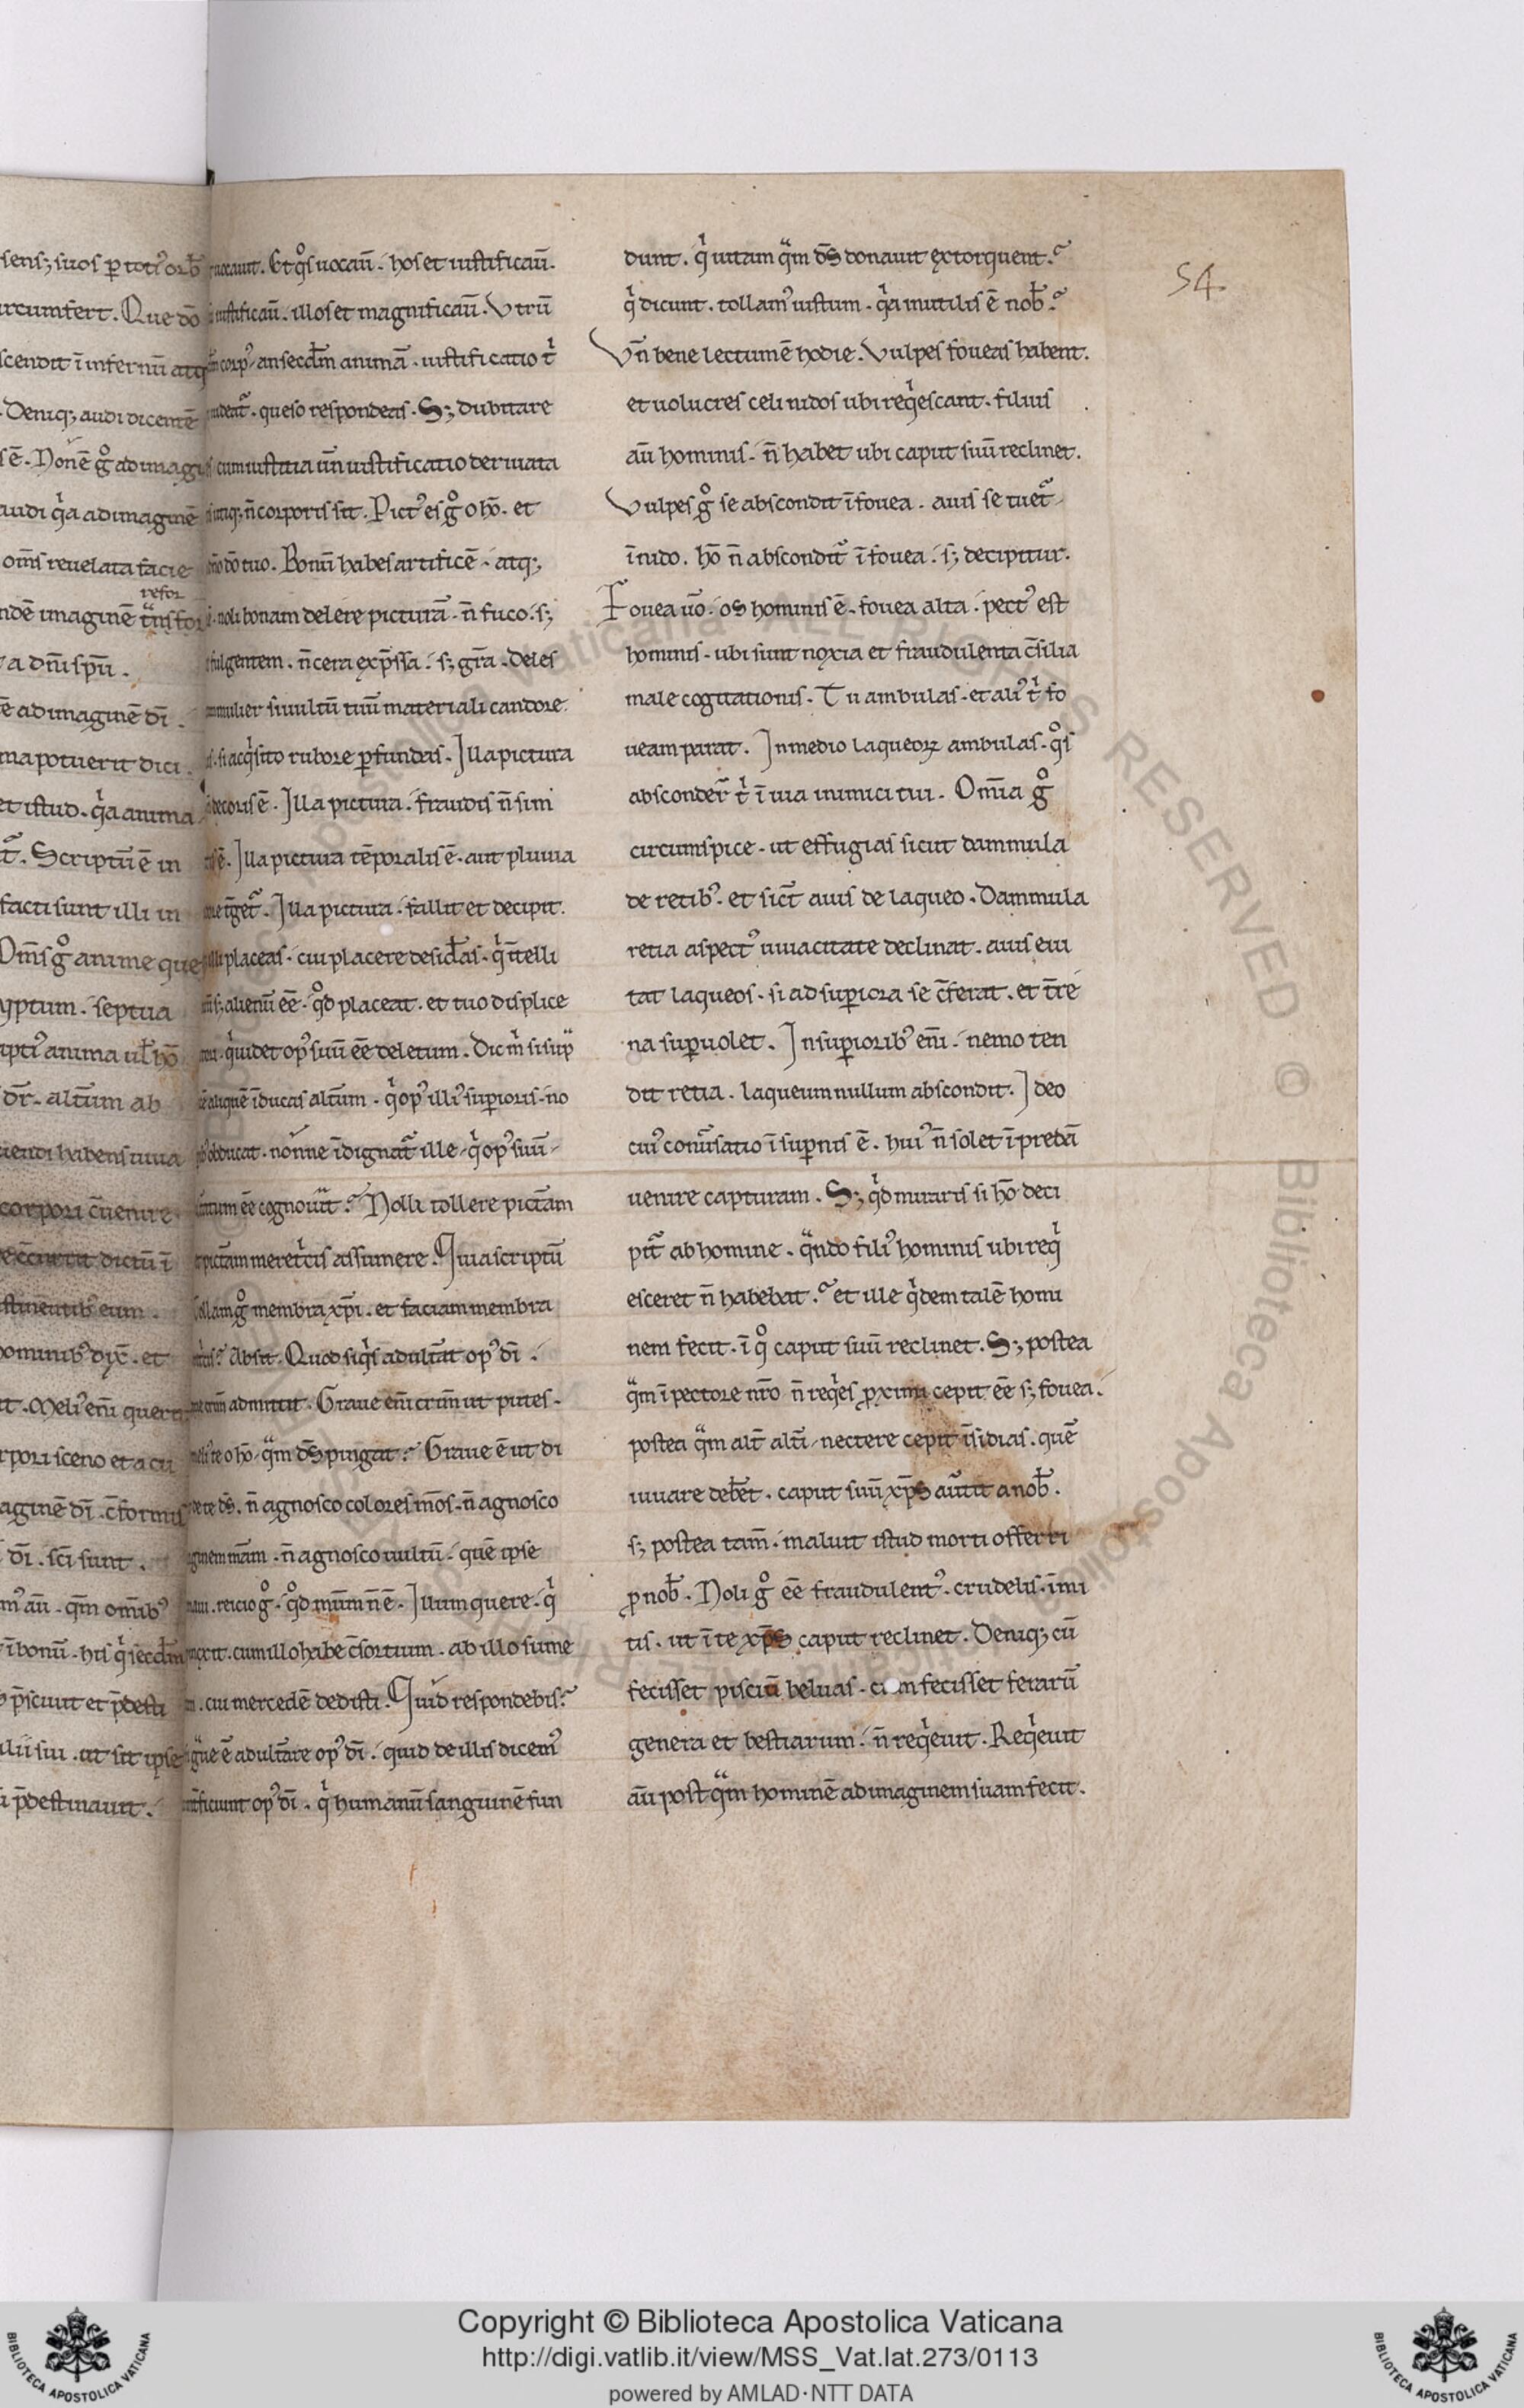 sens; suos ꝑ totꝰ orb̄
ircumfert. Que dō
scendit ī infernū atq
. Deniq; audi dicentē
sē. Nonē gͦ ad imagi
audi qͥa ad imaginē
om̄s reuelata facie
refor
ndē imaginē tͣnsfor
a dn̄i sp̄u.
ē ad imaginē dī.
ma potuerit dici.
et istud. qͥa anima
Scriptū ē in
facti sunt illi in
Om̄s gͦ anime que
yptum. septua
anima ul̄ hō
dr̄. altm̄ ab
habens uiua
corpori c̄uenire.
dictū ī
eum.
ominibꝰ dix̄. et
it. Meliꝰ eni quer
rpori sceno et a cu
aginē dī. c̄formis
dī. sc̄i sunt.
mꝰ aū. qm̄ omībꝰ
ī bonū. his qͥ secd̄m
p̄sciuit et p̄desti
ilii sui. ut sit ipse
p̄destinauit.
uocauit. Et qͦs uocaū. hos et iustificaū.
iustificaū. illos et magnificaū. Utrū
corpꝰ. an secd̄m animā. iustificatio tͥ
queso respondeas. S; dubitare
cum iustitia un̄ iustificatio deriuata
n̄ corporis sit. Pictꝰ es gͦ o hō. et
dō tuo. Bonū habes artificē. atq;
noli bonam delere picturā. n̄ fuco. s;
fulgentem. n̄ cera exp̄ssa. s; gr̄a. Deles
mulier si uultū tuū materiali candore.
si acqͥsito rubore ꝑfundas. Illa pictura
decoris ē. Illa pictura. fraudis n̄ sim
ē. Illa pictura tēporalis ē. aut pluuia
Illa pictura. fallit et decipit.
placeas. cui placere desid̄as. qͥ n̄ telli
alienū eē. qͦd placeat. et tuo displice
qͥ uidet opꝰ suū eē deletum. Dic mͥ si supͣ
aliquē īducas altm̄. qͥ opꝰ illiꝰ suꝑioris. no
obducat. nonne īdignat᷑ ille. qͥ opꝰ suū.
eē cognouͥt? Noli tollere pictām
pictām meretͥcis assumere. Quia scriptū
Tollam gͦ membra xp̄i. et faciam membra
Absit. Quod siqͥs adult̄at opꝰ dī.
admittit. Graue eni crim̄ ut putes.
te o hō. qͣm dS̄ pingat? Graue ē ut di
ds̄. n̄ agnosco colores m̄os. n̄ agnosco
mām. n̄ agnosco uultū. quē ipse
reicio gͦ. qͦd mūm n̄ ē. Illum quere. qͥ
cum illo habe c̄sortium. ab illo sume
cui mercedē dedisti. Quid respondebis?
ē adult̄are opꝰ dī. quid de illis dicemꝰ
opꝰ dī. qͥ humanū sanguinē fun
54.
dunt. qͥ uitam qͣm dS̄ donauit extorquent?
qͥ dicunt. tollamꝰ iustum. qͥa inutilis ē nob̄?
Un̄ bene lectum ē hodie. Vulpes foueas habent.
et uolucres celi nidos ubi reqͥescant. filius
aū hominis. n̄ habet ubi caput suū reclinet.
Vulpes gͦ se abscondit ī fouea. auis se tuet᷑
ī nido. hō n̄ abscondit᷑ ī fouea. s; decipitur.
Fouea uͦo. os hominis ē. fouea alta. pectꝰ est
hominis. ubi sunt noxia et fraudulenta c̄silia
male cogitationis. Tu ambulas. et aliꝰ tͥ fo
ueam parat. In medio laqueoꝝ ambulas. qͦs
absconder̄ tͥ ī uia inimici tui. Omīa gͦ
circumspice. ut effugias sicut dammula
de retibꝰ. et sict̄ auis de laqueo. Dammula
retia aspectꝰ uiuacitate declinat. auis eui
tat laqueos. si ad suꝑiora se c̄ferat. et t̄re
na suꝑuolet. In suꝑioribꝰ eni. nemo ten
dit retia. laqueum nullum abscondit. Ideo
cuiꝰ conūsatio ī suꝑnis ē. huiꝰ n̄ solet ī predā
uenire capturam. S; qͥd miraris si hō deci
pit᷑ ab homine. qͣndo filiꝰ hominis ubi reqͥ
esceret n̄ habebat? et ille qͥdem talē homi
nem fecit. ī qͦ caput suū reclinet. S; postea
qͣm ī pectore nr̄o n̄ reqͥes ꝓximi cepit eē s; fouea.
postea qͣm alt̄ alt̄i nectere cepit īsidias. quē
iuuare deb̄et. caput suū xp̄S aūtit a nob̄.
s; postea tam̄. maluit istud morti offerri
ꝓ nob̄. Noli gͦ eē fraudulentꝰ. crudelis. īmi
tis. ut ī te xp̄S caput reclinet. Deniq; cū
fecisset pisciū beluas. cum fecisset ferarū
genera et bestiarum. n̄ reqͥeuit. Reqͥeuit
aū post qͣm hominē ad imaginem suam fecit.
Copyright © Biblioteca Apostolica Vaticana
http://digi.vatlib.it/view/MSS_Vat.lat.273/0113
powered by AMLAD·NTT DATA